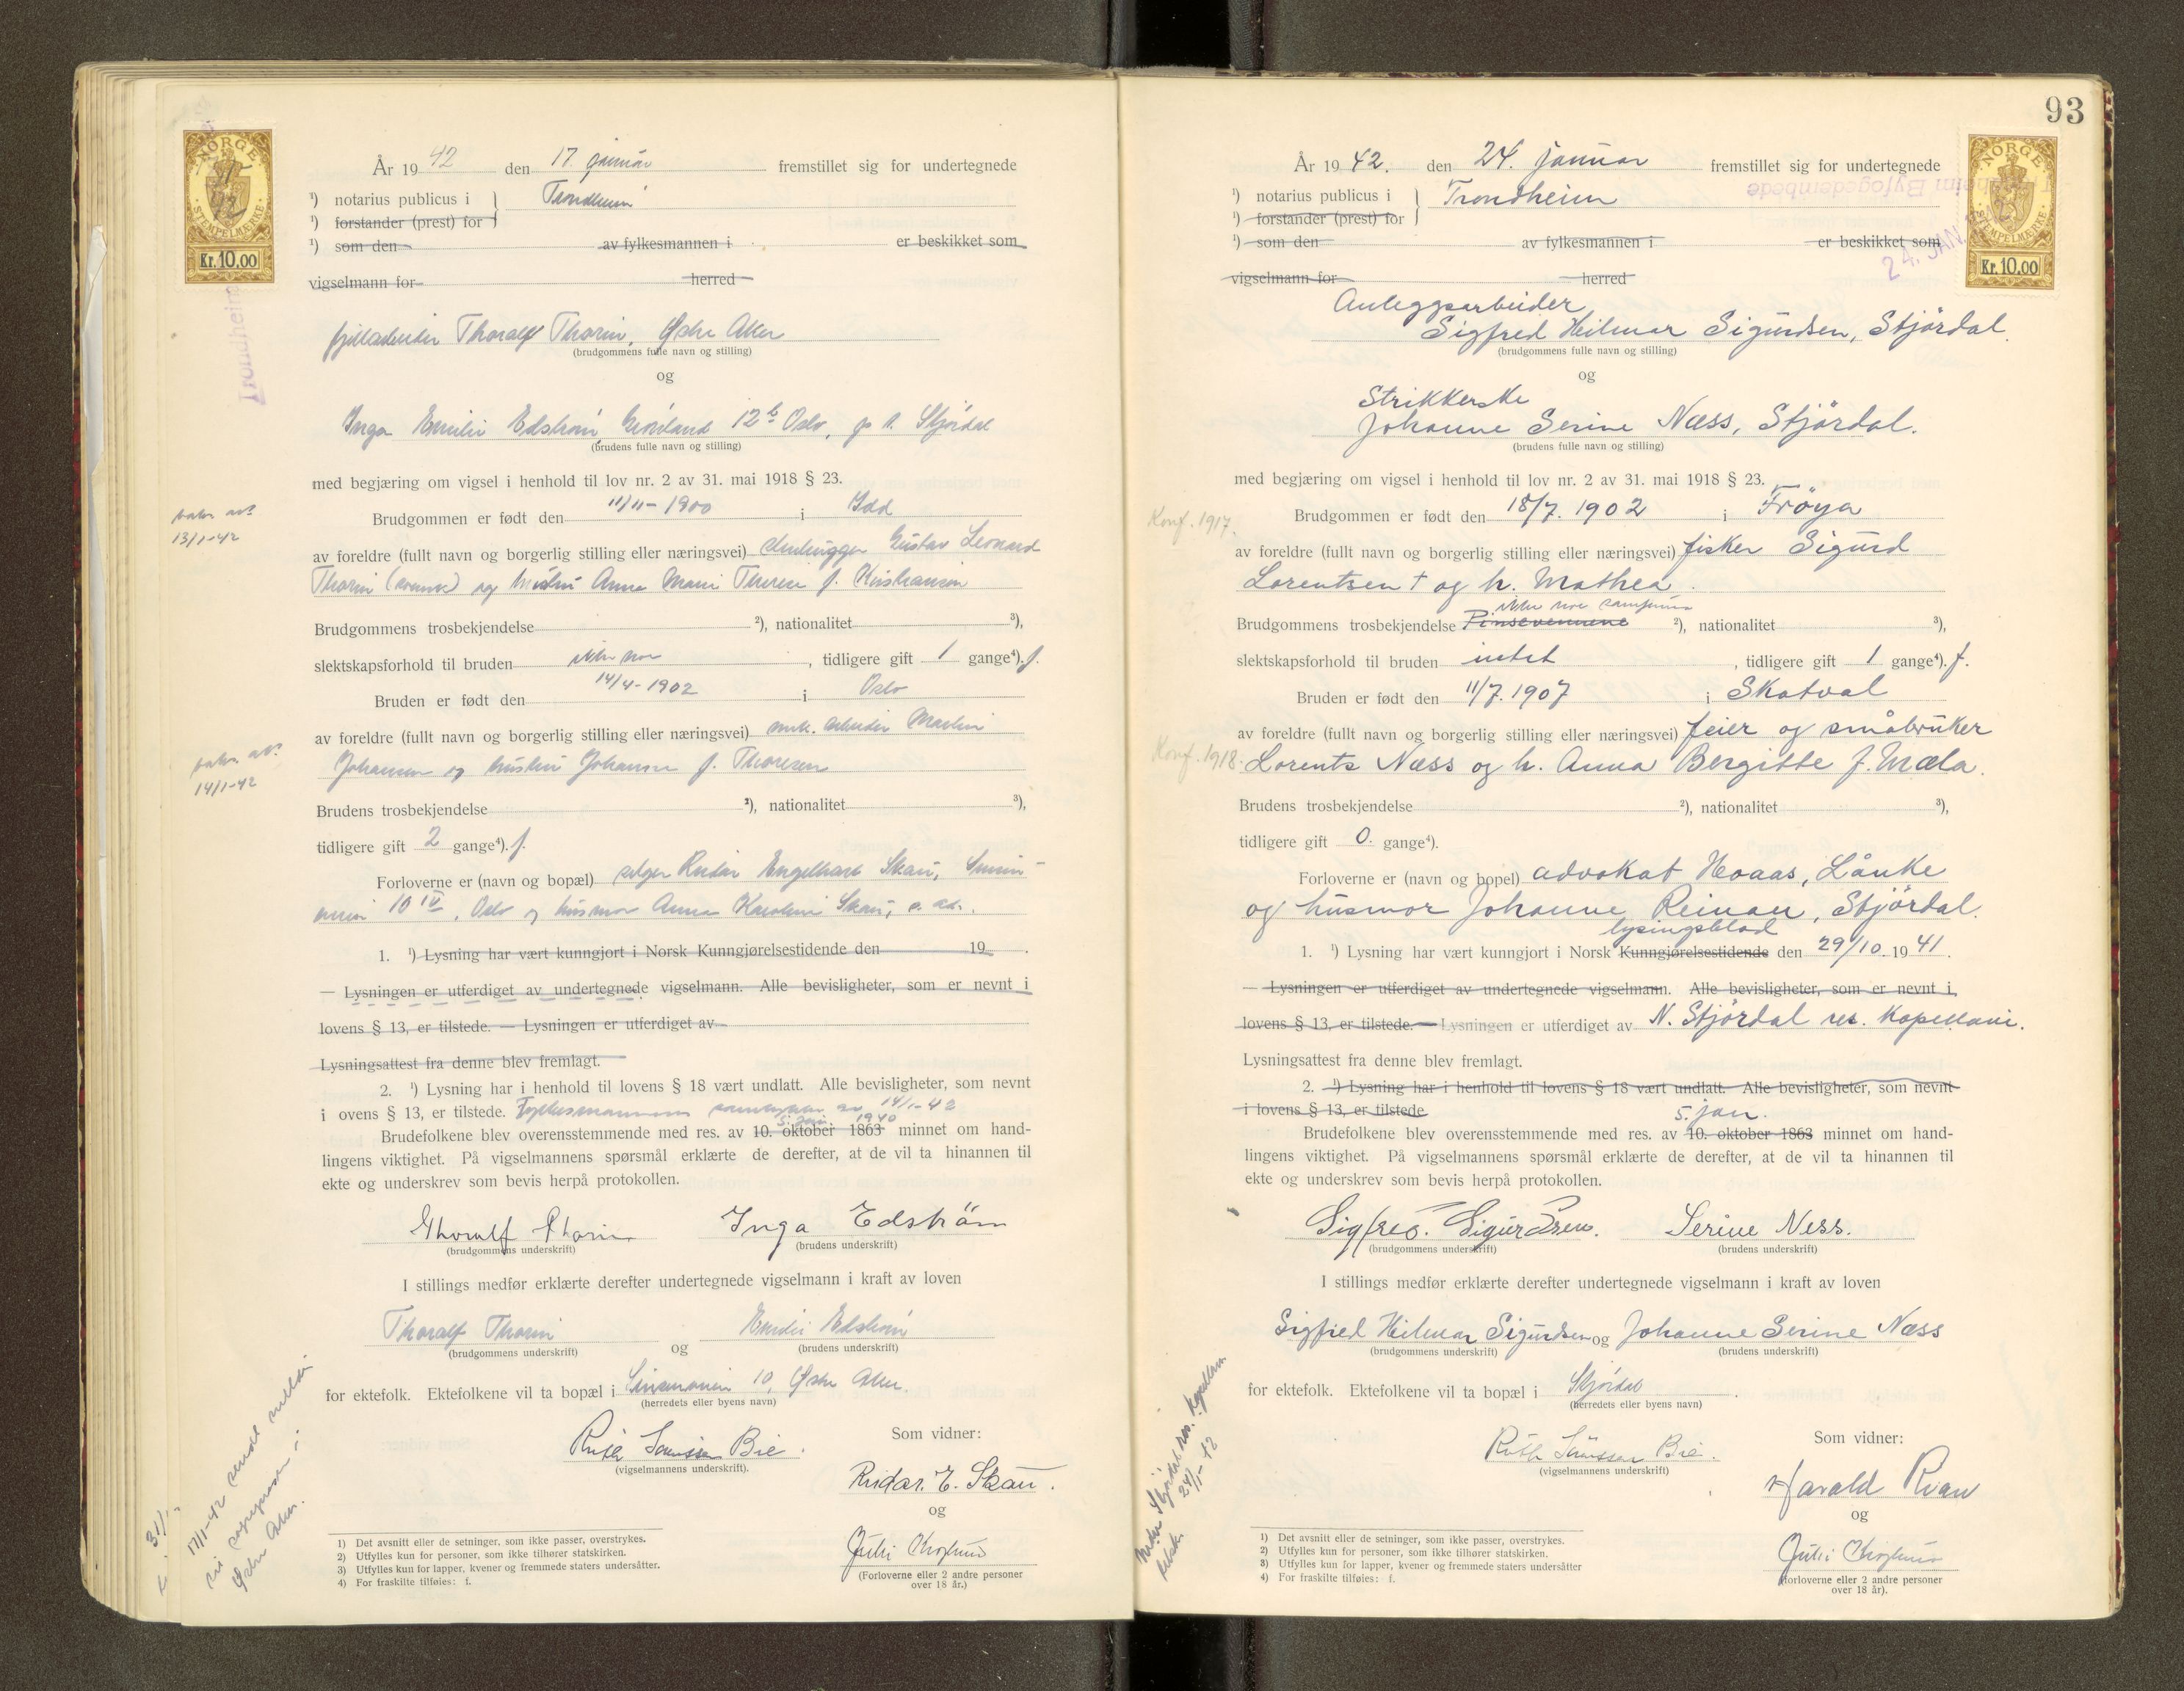 NORGE
31/1 42
STEMPELMERKE
Kr. 10.00
Trondheim
År 1942 den 17. januar fremstillet sig for undertegnede
¹) notarius publicus i Trondheim
¹) forstander (prest) for
¹) som den av fylkesmannen i er beskikket som
vigselmann for herred
Thoralf Thorin, Østre Aker
(brudgommens fulle navn og stilling)
og
Inga Emilie Edstrøm, Grønland 12 b Oslo, Stjørdal
(brudens fulle navn og stilling)
med begjæring om vigsel i henhold til lov nr. 2 av 31. mai 1918 § 23.
Brudgommen er født den 11/11-1900 i Idd
13/1-42
av foreldre (fullt navn og borgerlig stilling eller næringsvei) stenhugger Gustav Leonard
Thorin (svensk) og hustru Anna Marie Therese f. Kristiansen
Brudgommens trosbekjendelse ²), nationalitet ³),
slektskapsforhold til bruden ikke noe, tidligere gift 1 gange⁴). f.
Bruden er født den 14/4-1902 i Oslo
av foreldre (fullt navn og borgerlig stilling eller næringsvei) murarbeider Martin
Johansen og hustru Johanne f. Thoresen
14/1-42
Brudens trosbekjendelse ²), nationalitet ³),
tidligere gift 2 gange⁴). f.
Forloverne er (navn og bopæl) selger Reidar Engelhart Skau, Sinsen-
veien 10 IV, Oslo og husmor Anna Karoline Skau, s. ad.
1. ¹) Lysning har vært kunngjort i Norsk Kunngjørelsestidende den 19 .
— Lysningen er utferdiget av undertegnede vigselmann. Alle bevisligheter, som er nevnt i
lovens § 13, er tilstede. — Lysningen er utferdiget av
Lysningsattest fra denne blev fremlagt.
2. ¹) Lysning har i henhold til lovens § 18 vært undlatt. Alle bevisligheter, som nevnt
i ovens § 13, er tilstede. Fylkesmannens samtykke av 14/1-42
5. jan. 1940
Brudefolkene blev overensstemmende med res. av 10. oktober 1863 minnet om hand-
lingens viktighet. På vigselmannens spørsmål erklærte de derefter, at de vil ta hinannen til
ekte og underskrev som bevis herpå protokollen.
Thoralf Thorin Inga Edström
(brudgommens underskrift) (brudens underskrift)
I stillings medfør erklærte derefter undertegnede vigselmann i kraft av loven
Thoralf Thorin og Emilie Edstrøm
(brudgommens underskrift) (brudens underskrift)
for ektefolk. Ektefolkene vil ta bopæl i Sinsenveien 10, Østre Aker.
(herredets eller byens navn)
Som vidner:
Ruth Sørenssen Bie.
(vigselmannens underskrift).
Reidar. E. Skau.
og
(Forloverne eller 2 andre personer
over 18 år.)
17/1-42 sendt melding
til sogneprest i
Østre Aker.
1) Det avsnitt eller de setninger, som ikke passer, overstrykes.
2) Utfylles kun for personer, som ikke tilhører statskirken.
3) Utfylles kun for lapper, kvener og fremmede staters undersåtter.
4) For fraskilte tilføies: f.
93
NORGE
STEMPELMERKE
Kr. 10.00
Trondheim Byfogedembede
24. JAN.
År 1942. den 24. januar fremstillet sig for undertegnede
¹) notarius publicus i Trondheim
¹) forstander (prest) for
¹) som den av fylkesmannen i er beskikket som
vigselmann for herred
Anleggsarbeider
Sigfred Hilmar Sigurdsen, Stjørdal.
(brudgommens fulle navn og stilling)
og
Strikkerske
Johanne Serine Næss, Stjørdal.
(brudens fulle navn og stilling)
med begjæring om vigsel i henhold til lov nr. 2 av 31. mai 1918 § 23.
Konf. 1917.
Brudgommen er født den 18/7. 1902 i Frøya
av foreldre (fullt navn og borgerlig stilling eller næringsvei) fisker Sigurd
Lorentsen † og h. Mathea.
ikke noe samfunn
Brudgommens trosbekjendelse Pinsevennene ²), nationalitet ³),
slektskapsforhold til bruden intet, tidligere gift 1 gange⁴). f.
Bruden er født den 11/7. 1907 i Skatval
av foreldre (fullt navn og borgerlig stilling eller næringsvei) feier og småbruker
Konf. 1918.
Lorents Næss og h. Anna Bergitte f. Mæla.
Brudens trosbekjendelse ²), nationalitet ³),
tidligere gift 0. gange⁴).
Forloverne er (navn og bopel) advokat Hoaas, Lånke
og husmor Johanne Reinau, Stjørdal.
lysingsblad
1. ¹) Lysning har vært kunngjort i Norsk Kunngjørelsestidende den 29/10. 1941.
— Lysningen er utferdiget av undertegnede vigselmann. Alle bevisligheter, som er nevnt i
lovens § 13, er tilstede. — Lysningen er utferdiget av N. Stjørdal res. Kapellani.
Lysningsattest fra denne blev fremlagt.
2. ¹) Lysning har i henhold til lovens § 18 vært undlatt. Alle bevisligheter, som nevnt
i lovens § 13, er tilstede
5. jan.
Brudefolkene blev overensstemmende med res. av 10. oktober 1863 minnet om hand-
lingens viktighet. På vigselmannens spørsmål erklærte de derefter, at de vil ta hinannen til
ekte og underskrev som bevis herpå protokollen.
Sigfred. Sigurdsen. Serine Ness.
(brudgommens underskrift) (brudens underskrift)
I stillings medfør erklærte derefter undertegnede vigselmann i kraft av loven
Sigfred Hilmar Sigurdsen og Johanne Serine Næss
(brudgommens underskrift) (brudens underskrift)
for ektefolk. Ektefolkene vil ta bopæl i Stjørdal.
(herredets eller byens navn)
Som vidner:
Ruth Sørenssen Bie.
(vigselmannens underskrift)
Harald
og
(forloverne eller 2 andre personer
over 18 år).
Nedre Stjørdal res. Kapellani
24/1-42
1) Det avsnitt eller de setninger, som ikke passer, overstrykes.
2) Utfylles kun for personer, som ikke tilhører statskirken.
3) Utfylles kun for lapper, kvener og fremmede staters undersåtter
4) For fraskilte tilføies: f.